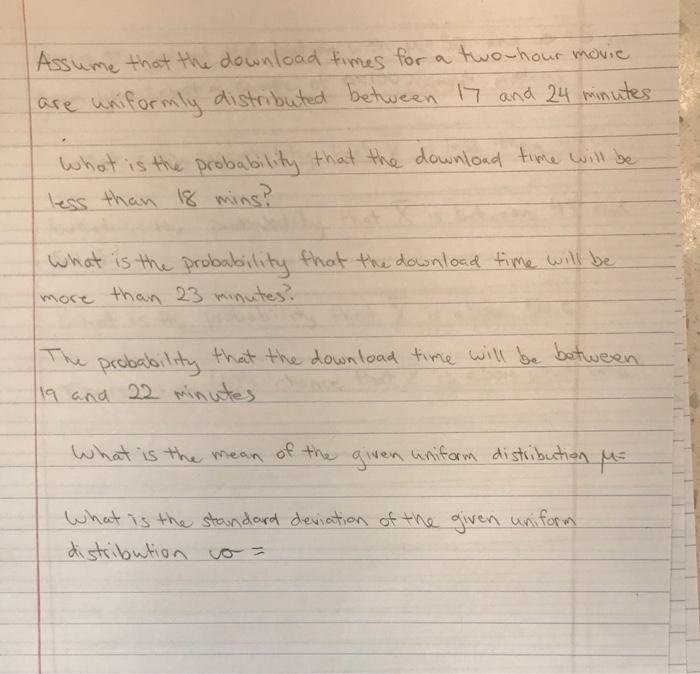 Assume that the download times for a two-hour movie
are uniformly distributed between 17 and 24 minutes
What is the probability that the download time will be
less than 18 mins?
What is the probability that the download time will be
more than 23 minutes?
The probability that the download time will be between
19 and 22 minutes
What is the mean of the given uniform distribution μ=
What is the standard deviation of the given uniform
distribution σ =